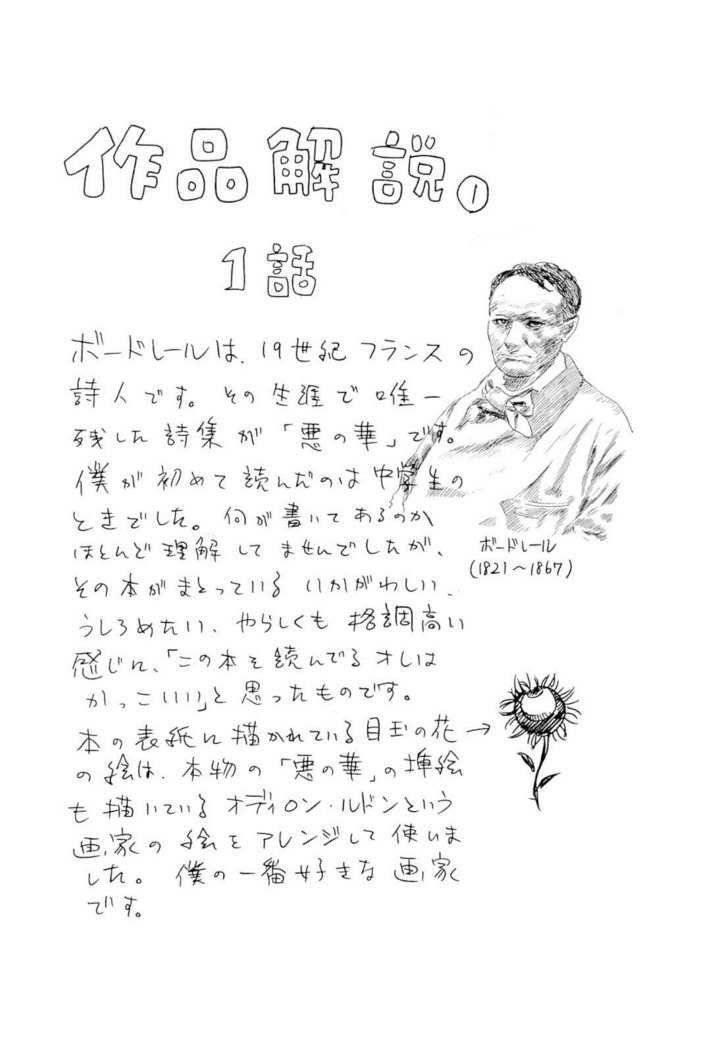 作品解説。①
1話
ボードレールは、19世紀フランスの
詩人です。その生涯で唯一
残した詩集が「悪の華」です。
僕が初めて読んだのは中学生の
ときでした。何が書いてあるのか
ほとんど理解してませんでしたが、
その本がまとっているいかがわしい、
うしろめたい、やらしくも格調高い
感じに、「この本を読んでるオレは
かっこいい」と思ったものです。
本の表紙に描かれている目玉の花→
の絵は、本物の「悪の華」の挿絵
も描いているオディロン・ルドンという
画家の絵をアレンジして使いま
した。僕の一番好きな画家
です。
ボードレール
(1821~1867)